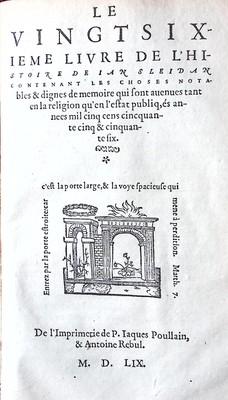 LE
VINGTSIX-
IEME LIVRE DE L'HI-
STOIRE DE IAN SLEIDAN
CONTENANT LES CHOSES NOTA-
bles & dignes de memoire qui sont auenues tant
en la religion qu'en l'estat publiq, és an-
nees mil cinq cens cincquan-
te cinq & cinquan-
te six.
Entrez par la porte estroite: car
c'est la porte large, & la voye spacieuse qui
mene à perdition. Matth. 7.
De l'Imprimerie de P. Iaques Poullain,
& Antoine Rebul.
M. D. LIX.